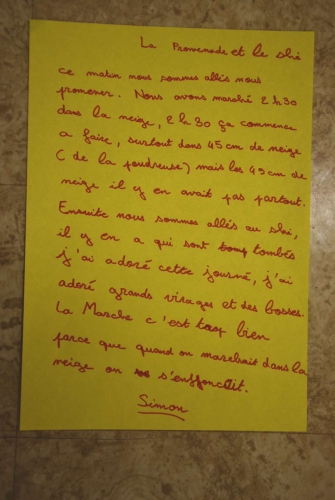 La Promenade et le ski
ce matin nous sommes allés nous
promener. Nous avons marché 2h30
dans la neige, 2h30 ça commence
a faire, surtout dans 45 cm de neige
(de la poudreuse) mais les 45 cm de
neige il y en avait pas partout.
Ensuite nous sommes allés au ski,
il y en a qui sont tombés
j'ai adoré cette journé, j'ai
adoré grands virages et des bosses.
La Marche c'est bien
parce que quand on marchait dans la
neige on s'enfoncait.
Simon